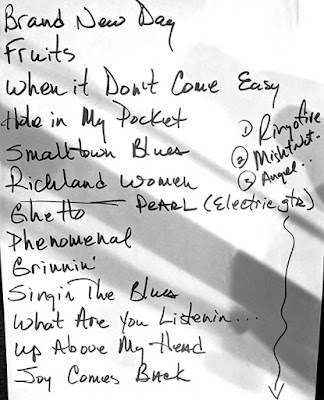 Brand New Day
Fruits
When it Don't Come Easy
Hole in My Pocket
Smalltown Blues
Richland Women
Ghetto PEARL (Electric gtr)
Phenomenal
Grinnin'
Singin The Blues
What Are You Listenin...
Up Above My Head
Joy Comes Back
① Ring of fire
② Might Not..
③ Angel...